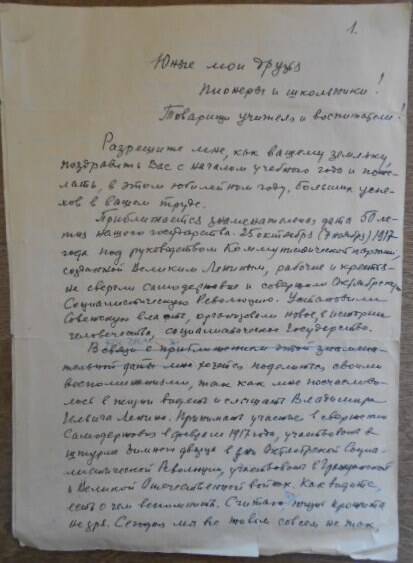 1.
Юные мои друзья
Пионеры и школьники!
Товарищи учителя и воспитатели!
Разрешите мне, как вашему земляку,
поздравить Вас с началом учебного года и поже-
лать, в этом юбилейном году, больших успе-
хов в вашем труде.
Приближается знаменательная дата 50 ле-
тия нашего государства. 25 октября (7 ноября) 1917
года под руководством Коммунистической партии,
созданной Великим Лениным, рабочие и крестья-
не свергли самодержавие и совершили Октябрьскую
Социалистическую Революцию. Установили
Советскую власть, организовали новое, в истории
человечества, социалистическое Государство.
В связи с приближением этой знамена-
тельной даты мне хочется поделится своими
воспоминаниями, так как мне посчастливи-
лось в жизни видеть и слышать Владимира
Ильича Ленина. Принимать участие в свержении
Самодержавия в феврале 1917 года, участвовать в
штурме зимнего дворца в дни Октябрьской Социа-
листической Революции, участвовать в Гражданской
и Великой Отечественной войнах. Как видите,
есть о чем вспомнить. Считаю жизнь прожита
не зря. Сегодня мы все живем совсем не так,